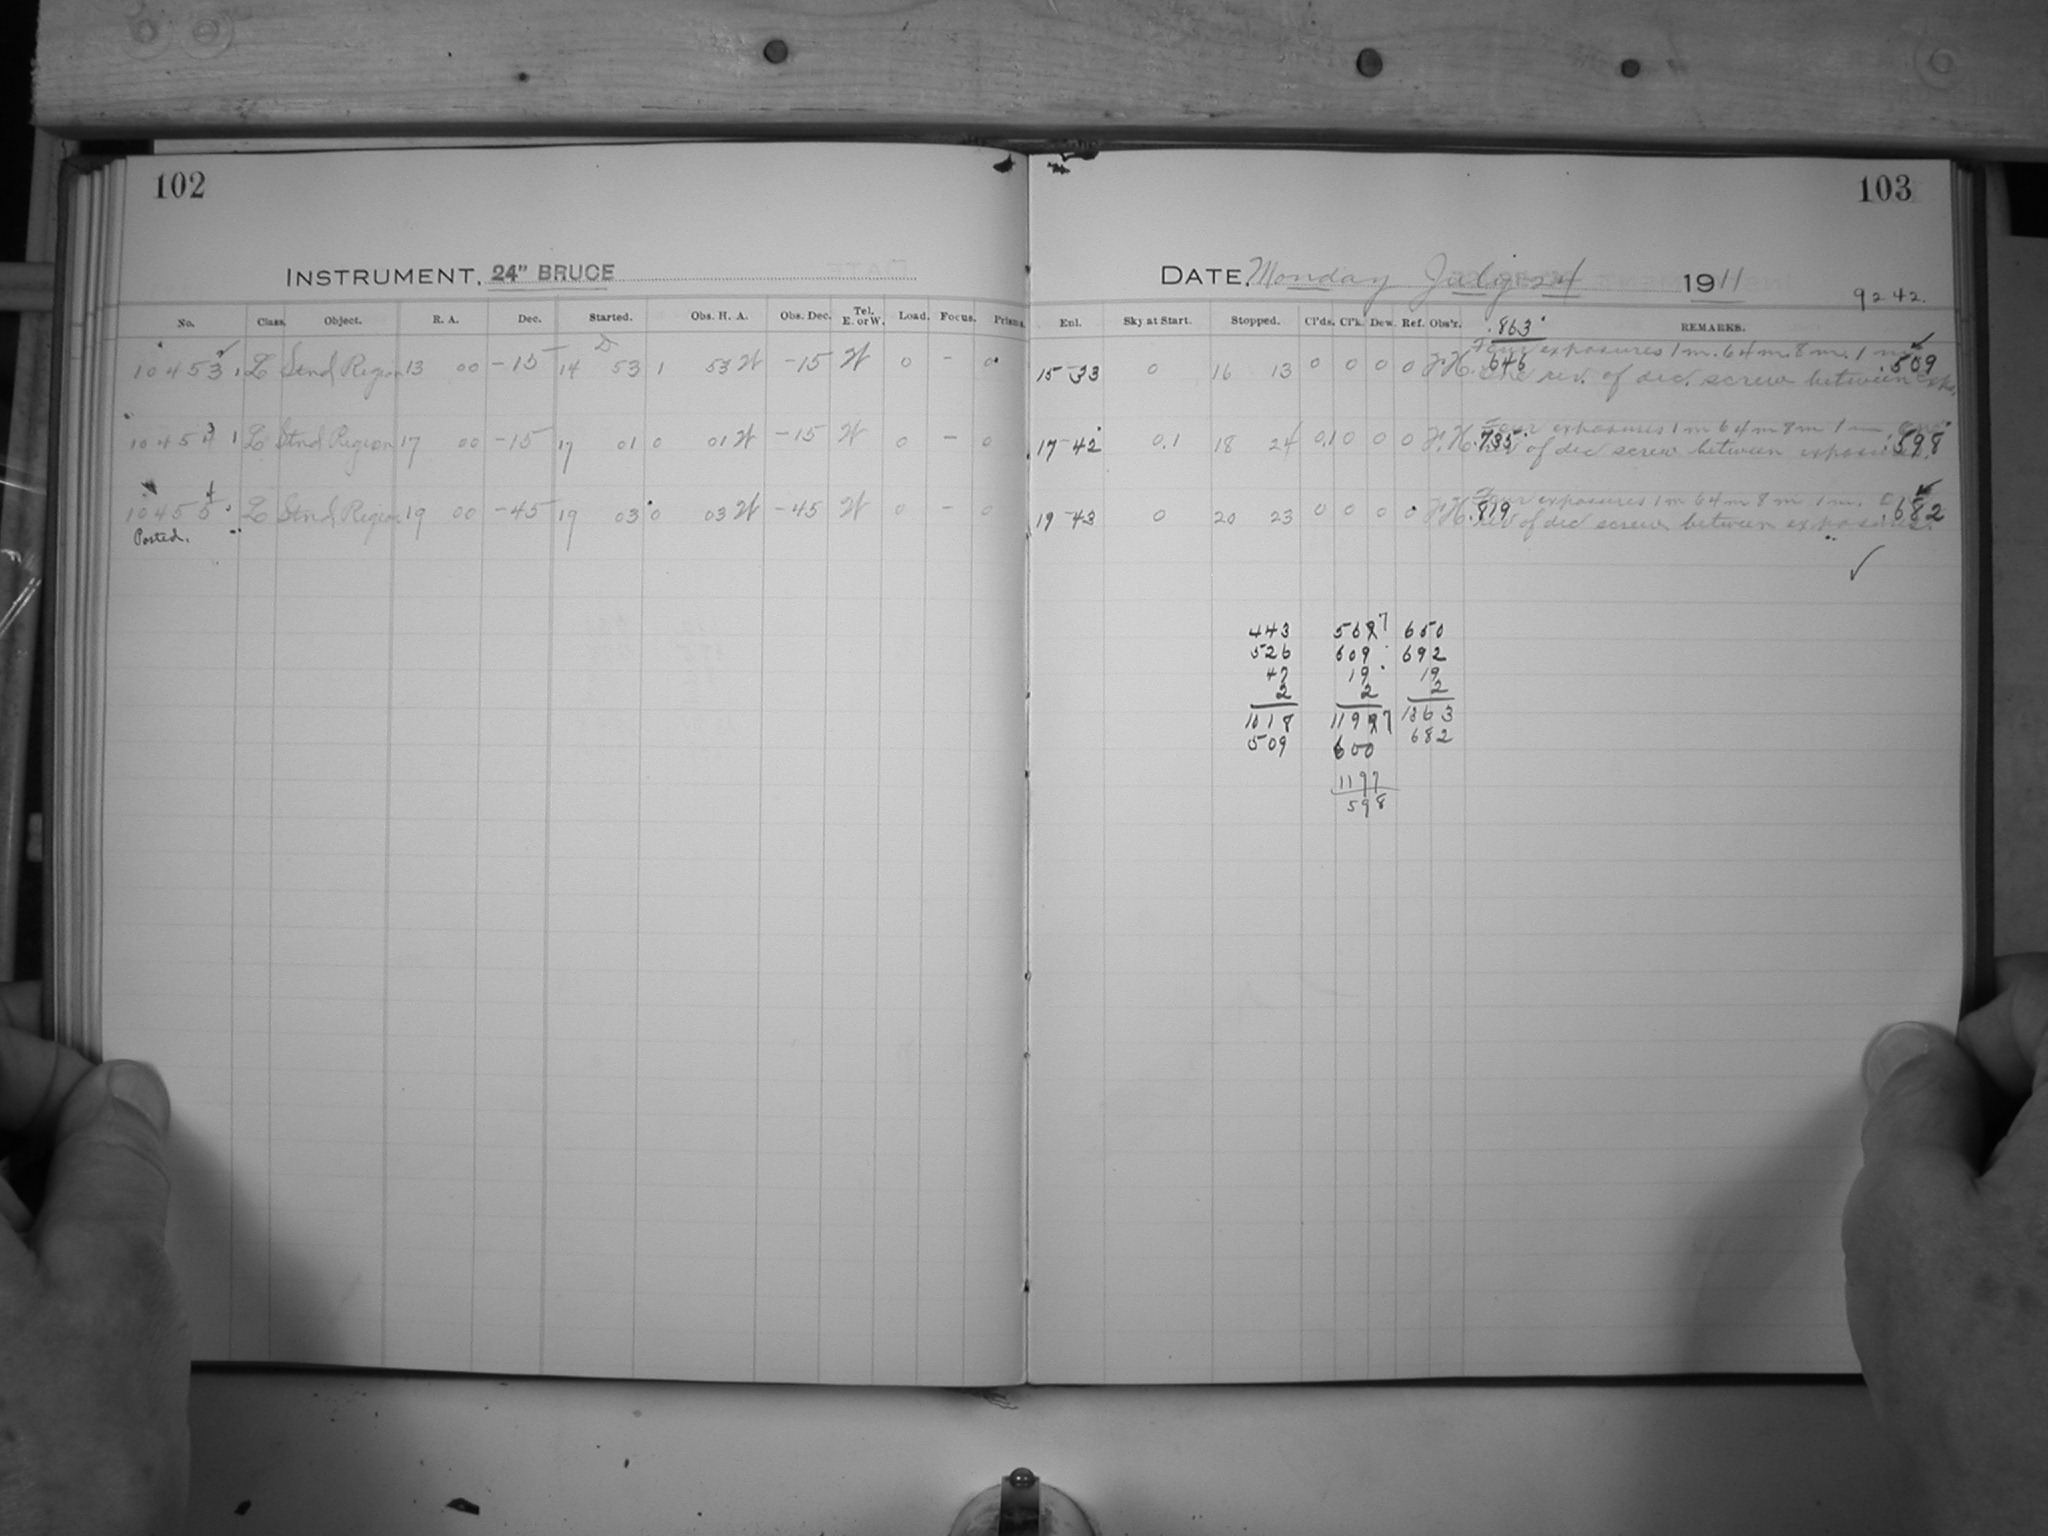 102
INSTRUMENT, 24" BRUCE
No. Class. Object. R. A. Dec. Started. Obs. H. A. Obs. Dec. Tel. E. or W. Load. Focus. Prisms.
10453 1 L Stnd Region 13 00 -15 14 53 1 53 W -15 W 0 - 0
1 L Stnd Region 17 00 -15 17 01 0 01 W -15 W 0 - 0
L Stnd Region 19 00 -45 19 03 0 03 W -45 W 0 - 0
Posted.
103
DATE, Monday July 24 1911
9242.
Enl. Sky at Start. Stopped. Cl'ds. Cl'k. Dew. Ref. Obs'r. REMARKS.
.863
15-33 0 16 13 0 0 0 0 .646 Four exposures 1m. 64m. 8m. 1m .509
rev. of dec. screw between expo.
17-42 0.1 18 24 0.1 0 0 0 .735 Four exposures 1m 64m 8m 1m one .598
rev of dec screw between exposures.
19-43 0 20 23 0 0 0 0 .819 Four exposures 1m 64m 8m 1m. .682
rev of dec screw between exposures.
✓
443 567 650
526 609 692
47 19 19
2 2 2
1018 1197 1363
509 600 682
1197
598